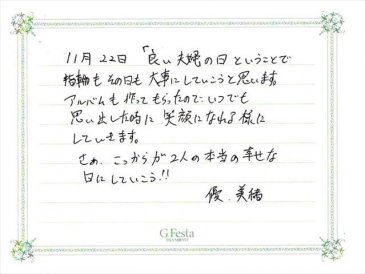 11月22日「良い夫婦の日ということで
指輪もその日も大事にしていこうと思います。
アルバムも作ってもらったので、いつでも
思い出した時に笑顔になれる様に
していきます。
さぁ、こっからが2人の本当の幸せな
日にしていこう!!
優.美緒
G.Festa
DIAMOND